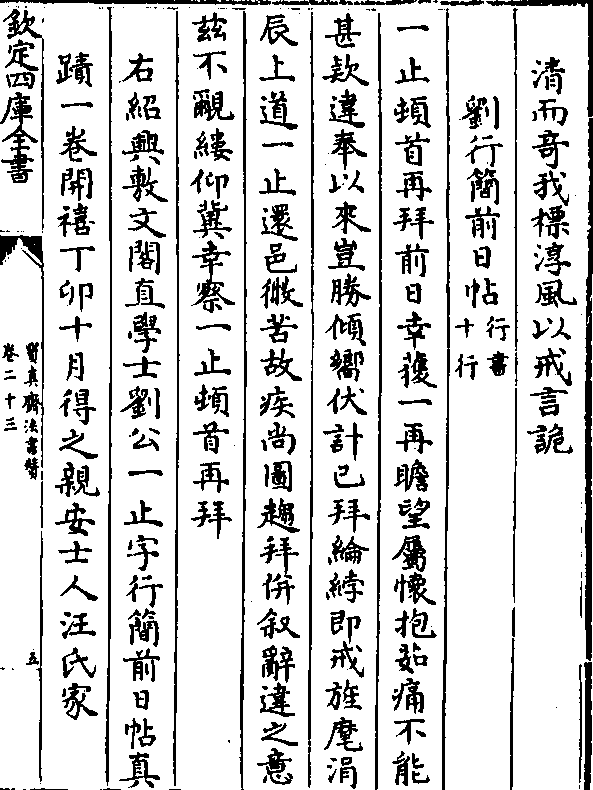 清而奇我標淳風以戒言詭
劉行簡前日帖行書十行
一止頓首再拜前日幸獲一再瞻望屬懷抱茹痛不能
甚欵違奉以來豈勝傾嚮伏計已拜綸綍即戒旌麾涓
辰上道一止還邑微苦故疾尚圖趨拜併叙辭違之意
茲不覼縷仰冀幸察一止頓首再拜
右紹興敷文閣直學士劉公一止字行簡前日帖真
蹟一卷開禧丁卯十月得之親安士人汪氏家
欽定四庫全書
寳真齋法書贊
卷二十三
五